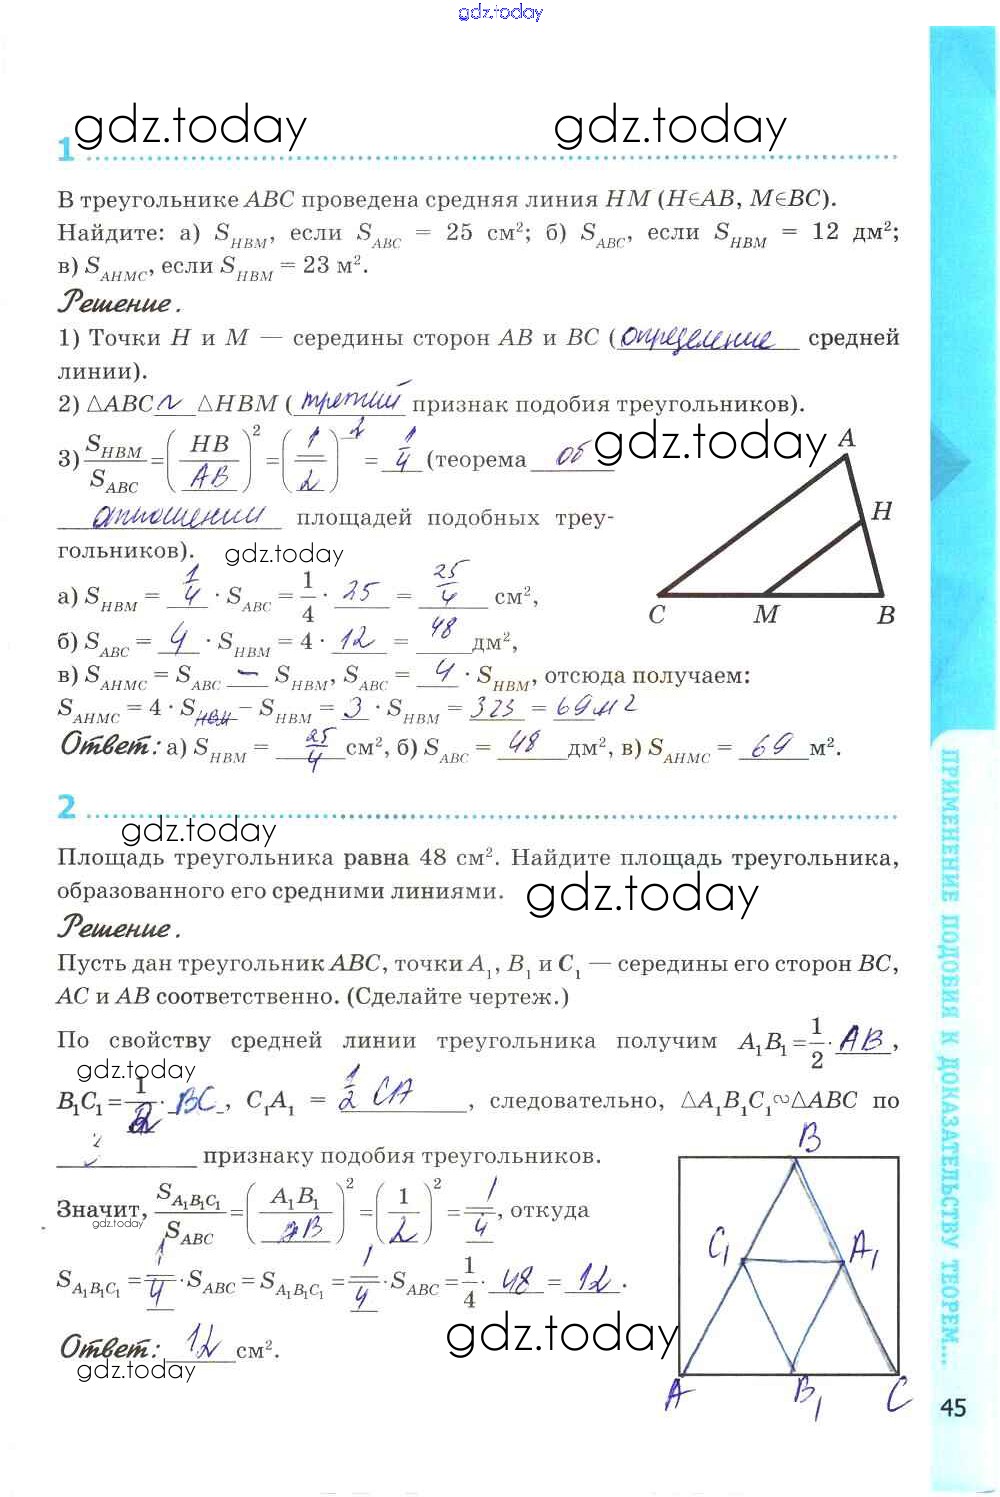 gdz.today
gdz.today gdz.today
1
В треугольнике ABC проведена средняя линия HM (H∈AB, M∈BC).
Найдите: а) S_HBM, если S_ABC = 25 см²; б) S_ABC, если S_HBM = 12 дм²;
в) S_AHMC, если S_HBM = 23 м².
Решение.
1) Точки H и M — середины сторон AB и BC (определение средней
линии).
2) △ABC ~ △HBM (третий признак подобия треугольников).
3) S_HBM/S_ABC = (HB/AB)² = (1/2)² = 1/4 (теорема об
gdz.today
отношении площадей подобных треу-
гольников).
gdz.today
а) S_HBM = 1/4 · S_ABC = 1/4 · 25 = 25/4 см²,
б) S_ABC = 4 · S_HBM = 4 · 12 = 48 дм²,
в) S_AHMC = S_ABC − S_HBM, S_ABC = 4 · S_HBM, отсюда получаем:
S_AHMC = 4 · S_HBM − S_HBM = 3 · S_HBM = 323 = 69 м2
Ответ: а) S_HBM = 25/4 см², б) S_ABC = 48 дм², в) S_AHMC = 69 м².
A
H
C M B
2
gdz.today
Площадь треугольника равна 48 см². Найдите площадь треугольника,
образованного его средними линиями.
gdz.today
Решение.
Пусть дан треугольник ABC, точки A₁, B₁ и C₁ — середины его сторон BC,
AC и AB соответственно. (Сделайте чертеж.)
По свойству средней линии треугольника получим A₁B₁ = 1/2 · AB,
gdz.today
B₁C₁ = 1/2 · BC, C₁A₁ = 1/2 CA, следовательно, △A₁B₁C₁ ∾ △ABC по
3 признаку подобия треугольников.
Значит, S_A₁B₁C₁/S_ABC = (A₁B₁/AB)² = (1/2)² = 1/4, откуда
gdz.today
S_A₁B₁C₁ = 1/4 · S_ABC = S_A₁B₁C₁ = 1/4 · S_ABC = 1/4 · 48 = 12.
Ответ: 12 см².
gdz.today
gdz.today
B
C₁ A₁
A B₁ C
ПРИМЕНЕНИЕ ПОДОБИЯ К ДОКАЗАТЕЛЬСТВУ ТЕОРЕМ...
45